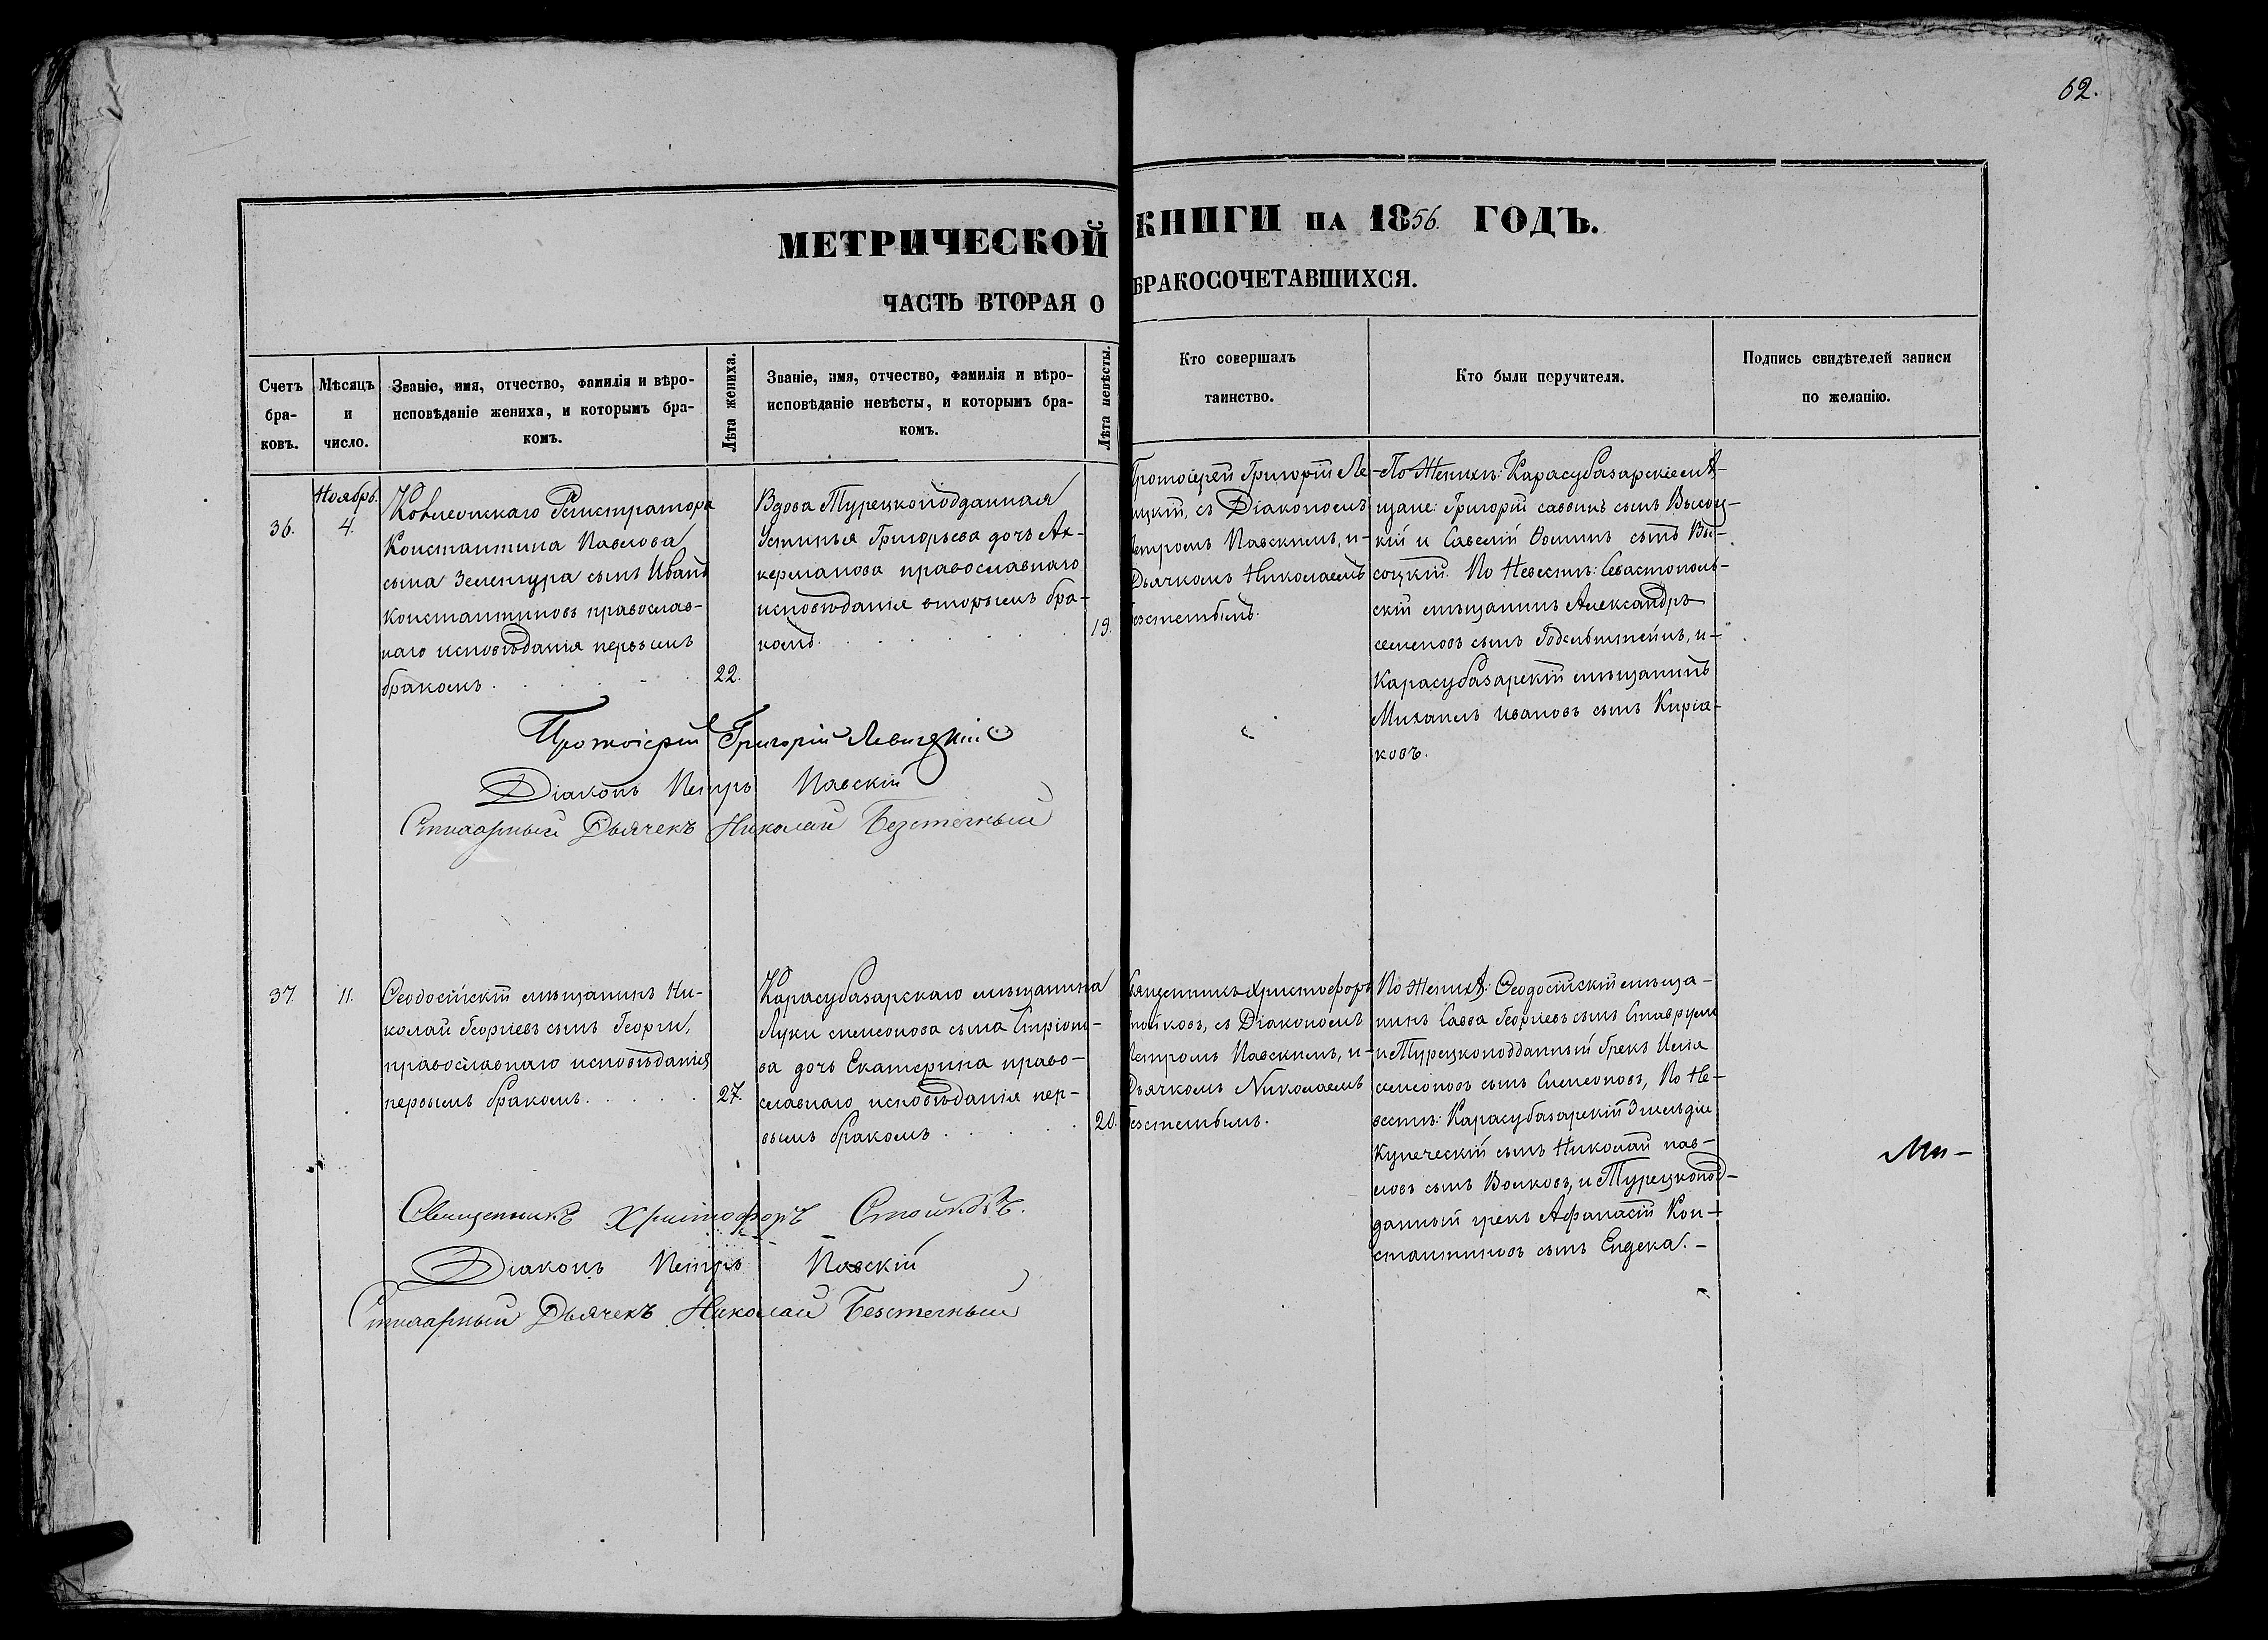 62.
МЕТРИЧЕСКОЙ КНИГИ НА 1856. ГОДЪ.
ЧАСТЬ ВТОРАЯ О БРАКОСОЧЕТАВШИХСЯ.
Счетъ
бра-
ковъ.
Мѣсяцъ
и
число.
Званіе, имя, отчество, фамилія и вѣро-
исповѣданіе жениха, и которымъ бра-
комъ.
Лѣта жениха.
Званіе, имя, отчество, фамилія и вѣро-
исповѣданіе невѣсты, и которымъ бра-
комъ.
Лѣта невѣсты.
Кто совершалъ
таинство.
Кто были поручители.
Подпись свидѣтелей записи
по желанію.
36.
Ноябрь.
4.
Регистратора
Константина Павлова
сына Зеленгура сынъ Иванъ
Константиновъ православ-
наго исповѣданія первымъ
бракомъ.
22.
Вдова Турецкоподданная
Устинья Григорьева дочь Ак-
керманова православнаго
исповѣданія вторымъ бра-
комъ.
19.
Протоіерей Григорій Ле
ицкій, съ Діакономъ
Петромъ Павскимъ, и-
Дьячкомъ Николаемъ
По Женихѣ: Карасубазарскіе мѣ-
щане: Григорій саввинъ сынъ Высоц-
кій и Савелій Ѳоминъ сынъ Вы-
соцкій. По Невестѣ: Севастополь-
скій мѣщанинъ Александръ
семеновъ сынъ и-
Карасубазарскій мѣщанинъ
Михаилъ Ивановъ сынъ Киріа-
ковъ.
Протоіерей Григорій Левицкій
Діаконъ Петръ Павскій
Стихарный Дьячекъ Николай Безстечный
37.
11.
Ѳеодосійскій мѣщанинъ Ни-
колай Георгіевъ сынъ Георги,
православнаго исповѣданія
первымъ бракомъ.
27.
Карасубазарскаго мѣщанина
Луки симеонова сына
ва дочь Екатерина право-
славнаго исповѣданія пер-
вымъ бракомъ
20.
Священникъ Христофоръ
тойковъ, съ Діакономъ
Петромъ Павскимъ, и-
Дьячкомъ Николаемъ
По Женихѣ: Ѳеодосійскій мѣща-
нинъ Савва Георгіевъ сынъ Ставрули
и Турецкоподданный Грекъ Илія
симеоновъ сынъ Симеоновъ, По Не-
вестѣ: Карасубазарскій
Купеческій сынъ Николай пав-
ловъ сынъ Волковъ, и Турецкопод-
данный грекъ Афанасій Кон-
стантиновъ сынъ Ендека. -
Ми-
Священникъ Христофоръ Стойковъ.
Діаконъ Петръ Павскій
Стихарный Дьячекъ Николай Безстечный